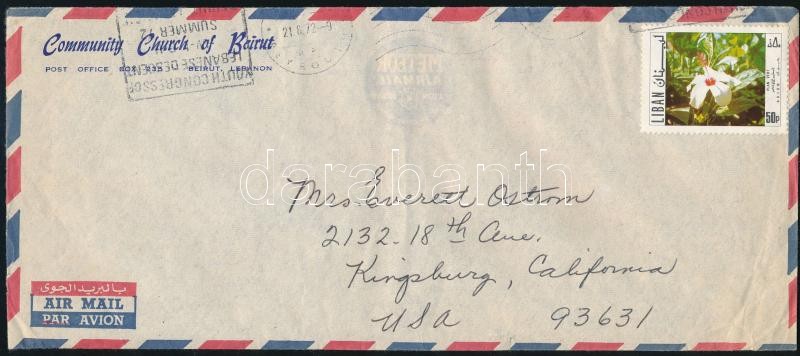 Community Church of Beirut
POST OFFICE BOX 235 BEIRUT, LEBANON
YOUTH CONGRESS OF
LEBANESE DESCENT
SUMMER 72
21.8.72-9
BEYROUTH
METEOR
AIR MAIL
LIBAN لبنان
50p
darabanth
Mrs. Everett Ostrom
2132-18th Ave.
Kingsburg, California
USA 93631
بالبريد الجوى
AIR MAIL
PAR AVION